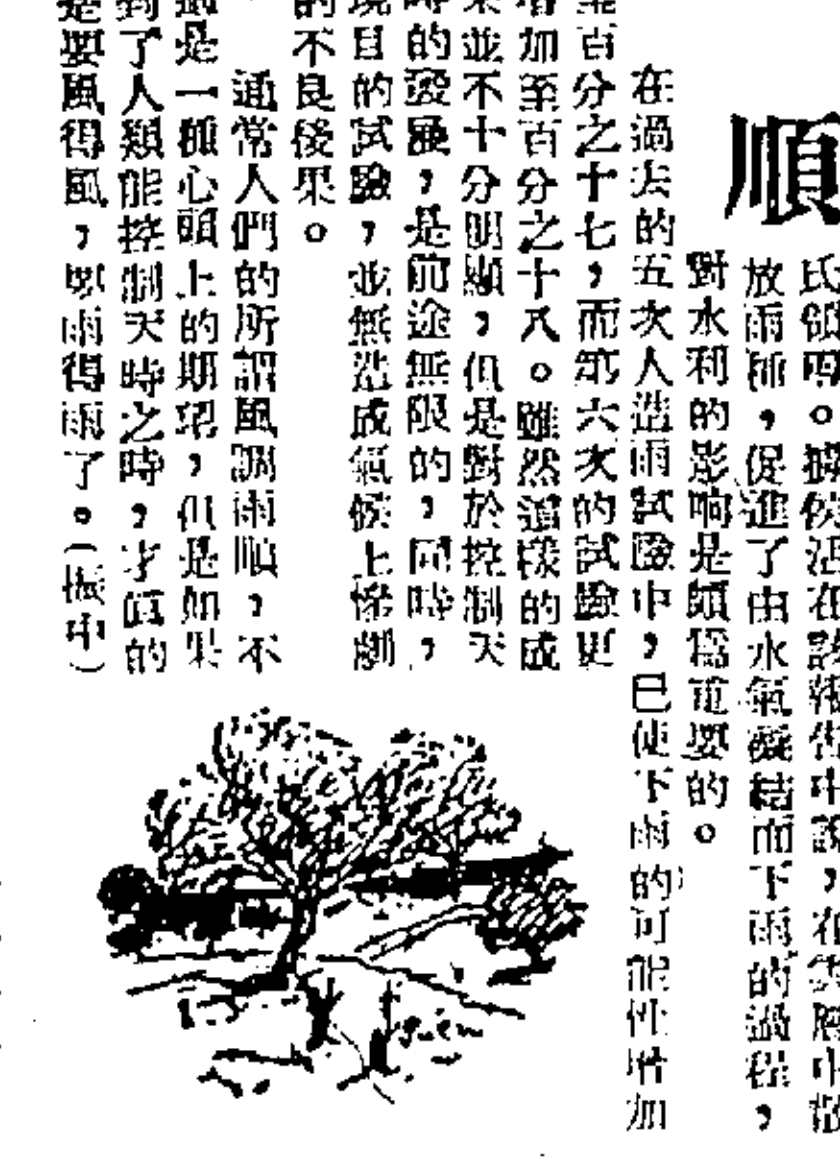 順
氏領導。據侯活在該報告中說,在雲層中散
放雨種,促進了由水氣凝結而下雨的過程,
對水利的影响是頗為重要的。
在過去的五次人造雨試驗中,已使下雨的可能性增加
至百分之十七,而第六次的試驗更
增加至百分之十八。雖然這樣的成
果並不十分明顯,但是對於控制天
時的發展,是前途無限的,同時,
境目的試驗,並無造成氣候上慘劇
的不良後果。
通常人們的所謂風調雨順,不
過是一種心頭上的期望,但是如果
到了人類能控制天時之時,才值的
是要風得風,要雨得雨了。(振中)